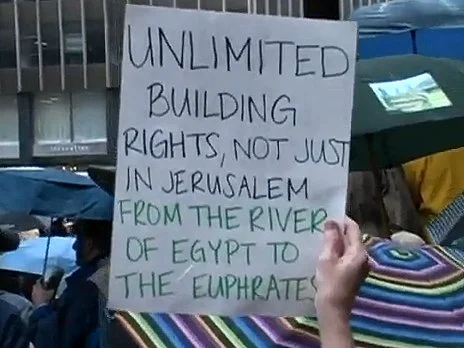 UNLIMITED
BUILDING
RIGHTS, NOT JUST
IN JERUSALEM
FROM THE RIVER
OF EGYPT TO
THE EUPHRATES